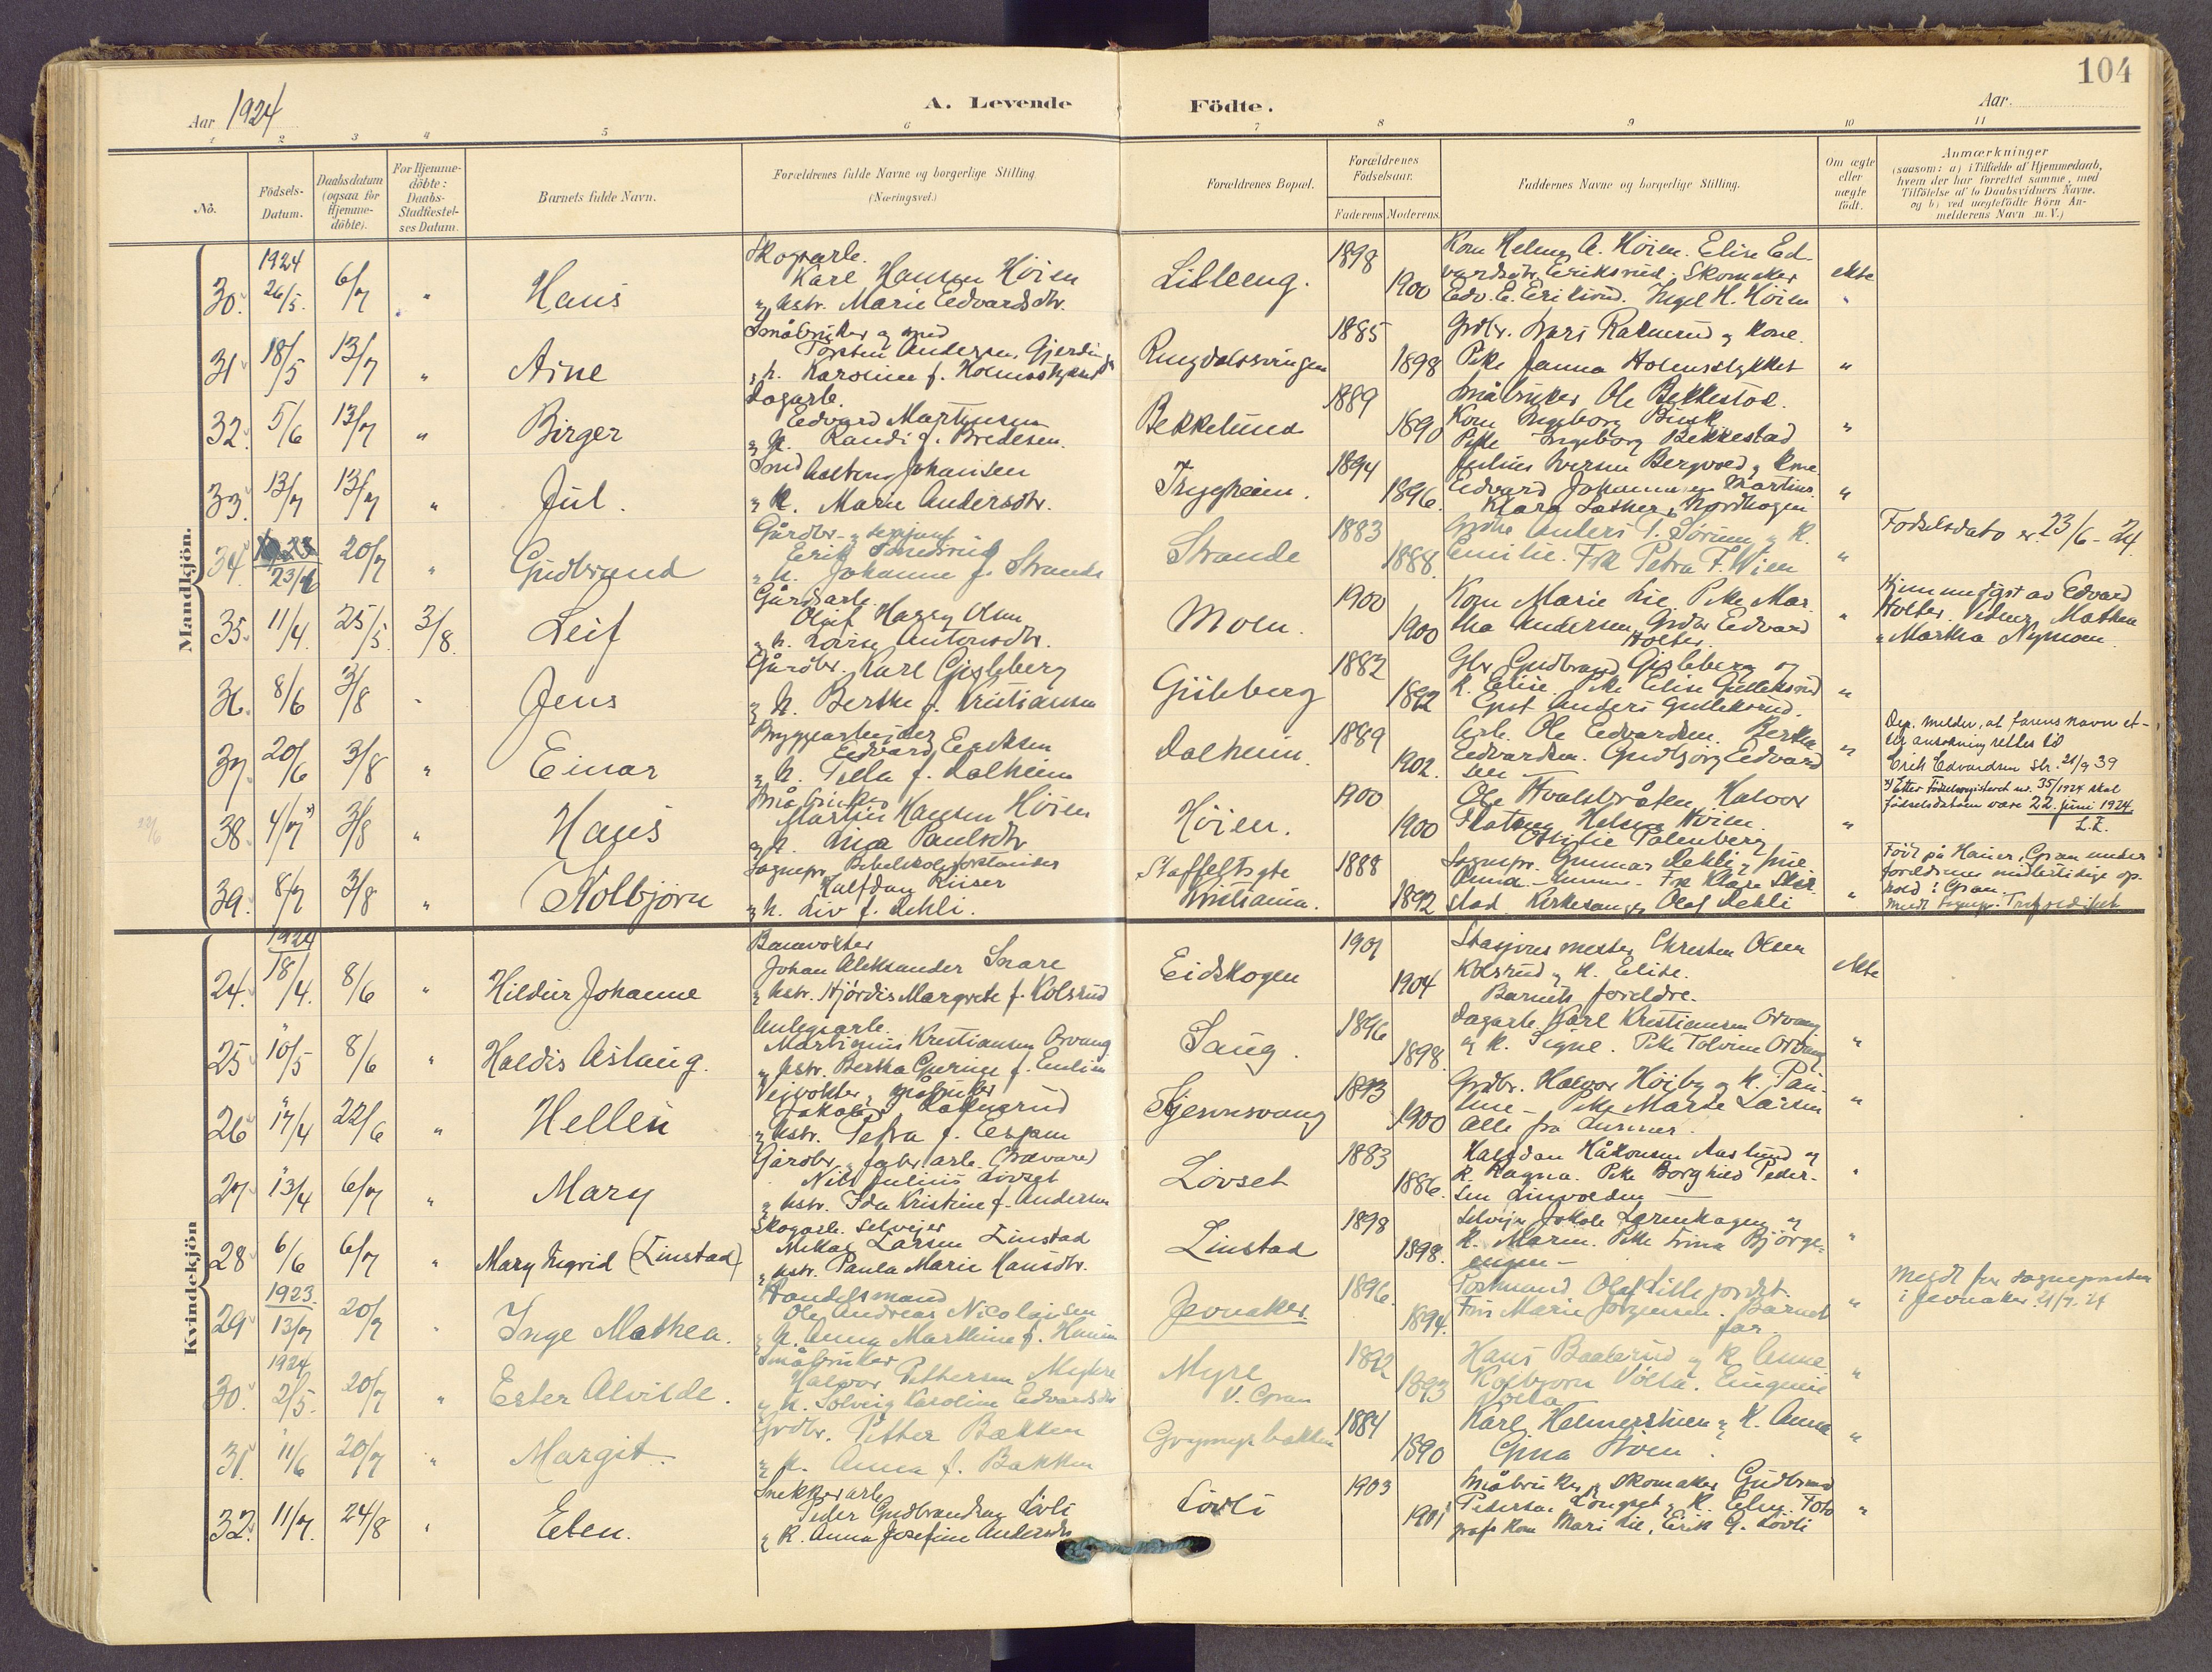 104
Aar 1924
A. Levende Födte.
Aar
1 2 3 4 5 6 7 8 9 10 11
No.
Födsels-Datum.
Daabsdatum (ogsaa for Hjemme-döbte).
For Hjemme-döbte: Daabs-Stadfæstel-ses Datum.
Barnets fulde Navn.
Forældrenes fulde Navne og borgerlige Stilling (Næringsvei.)
Forældrenes Bopæl.
Forældrenes Födselsaar.
Faderens Moderens
Faddernes Navne og borgerlige Stilling.
Om ægte eller uægte födt.
Anmærkninger
(saasom: a) i Tilfælde af Hjemmedaab,
hvem der har forrettet samme, med
Tilföielse af to Daabsvidners Navne.
og b) ved uægtefödte Börn An-
melderens Navn m. V.)
Mandkjön.
30. 1924 26/5. 6/7 " Hans
Skogarb.
Karl Hansen Höien
og hstr. Marie Edvardsdtr.
Lilleeng. 1898 1900
Kone Helene A. Höien. Elise Ed-
vardsdtr. Eriksrud. Skomaker
Edv. E. Eriksrud. Ingel H. Höien
ekte
31 18/5 13/7 " Arne
Småbruker og smed
Torsten Andersen Gjerdingen
Ringdalssvingen 1885 1898
og h. Karoline f. Holmsstykket
Pike Janna Holmsstykket "
32. 5/6 13/7 " Birger
Dagarb.
Edvard Martinsen
og h. Randi f. Bredesen.
Bekkelund 1889 1890
Småbruker Ole Bekkestad.
Kone Ingeborg
Pike Ingeborg Bekkestad "
33. 13/7 13/7 " Jul.
Smed Johansen
og k. Marie Andersdtr.
Trygheim. 1894 1896.
Julius Iversen Bergvold og kone
Edvard Johannesen
Klara Nordhagen "
34. 23/6 20/7 " Gudbrand
Gårdbr.
Erik
og h. Johanne f. Strande
Strande 1883 1888.
Anders T. Sörum og k.
Emilie. Frk Petra F. Wien "
Födselsdato er 23/6-24.
35. 11/4. 25/5. 3/8. Leif
Gårdsarb.
Olaf Hagen Olsen
og h. Lovise Antonsdtr.
Moen. 1900 1900
Kone Marie Lie Pike Mar-
tha Andersen, Grdbr Edvard
Holter. "
Hjemmedöpt av Edvard
Holter. Vidner Mathea
og Martha Nymoen
36. 8/6 3/8 - Jens
Gårdbr. Karl Gisleberg
og h. Berthe f. Kristiansen
Gisleberg 1882 1892
Gbr Gudbrand Gisleberg og
k. Elise. Pike Elise Gulleksrud
Gnst Anders Gulleksrud. "
37. 20/6 3/8 " Einar
Bryggearbeider
Edvard Eriksen
og h. Tella f. Dalheim
Dalheim. 1889 1902.
Arb. Ole Edvardsen. Bertha
Edvardsen. Gudbjörg Edvard
sen - "
Dep. melder, at farens navn et-
ter ansökning rettes til
Erik Edvardsen Skr. 21/9 39
22/6 38. 4/7 x) 3/8 " Hans
Småbruker
Martin Hansen Höien
og h. Lina Paulsdtr.
Höien. 1900 1900
Ole Hvalsbråten, Halvor
Helene Höien.
Othilie Palenberg "
x) Etter Födselsregisteret nr. 35/1924 skal
födselsdatoen være 22. juni 1924.
39. 8/7 3/8 " Kolbjörn
Sogneprest. Bibelskoleforstander
Halfdan Riiser
og h. Liv f. Dehli.
Staffeltsgte Kristiania. 1888 1892
Sognepr. Gunnar Dehli og frue
Anna - Frk Klara
stad Kirkesanger Olaf Dehli "
Födt på Haner, Gran under
foreldrenes midlertidige op-
hold i Gran.
Kvindekjön
24. 1924 18/4. 8/6 " Hildur Johanne
Banevokter
Johan Aleksander Snare
og hstr. Hjördis Margrete f. Kolsrud
Eidskogen 1901 1904
Stasjonsmester Christen Olsen
Kolsrud og k. Elise.
Barnets foreldre. ekte
25. 10/5 8/6 " Haldis Aslaug.
Anlegsarb.
Martinius Kristiansen Orvang
og hstr. Bertha Gurine f. Emlien
Saug. 1896 1898.
Dagarb. Karl Kristiansen Orvang
og k. Signe. Pike Tolvine Orvang "
26. 17/4 22/6 " Hellen
Veivokter og småbruker
Jakob Rattnerud
og hstr. Petra f. Espen
Stjernsvang 1893 1900
Grdbr. Halvor Höiby og k. Pau-
line - Pike Marte Larsen
Alle fra Lunner. "
27. 13/4 6/7 " Mary
Gårdbr. og fabr. arb. (Trævare)
Nils Julius Lövset
og hstr. Ida Kristine f. Andersen
Lövset 1883 1886.
Halfdan Håkonsen Aaslund og
k. Ragna. Pike Borghild Peder-
sen Linvolden "
28 6/6 6/7 " Mary Ingrid (Linstad)
Skogarb. Selveier
Mikal Larsen Linstad
og hstr. Paula Marie Hansdtr.
Linstad 1898 1898.
Selveier Jakob Larenhagen og
k. Maren. Pike Trina Björge-
engen - "
29 1923. 13/7 20/7 " Inge Mathea.
Handelsmand
Ole Andreas Nicolaisen
og h. Anna Marthine f. Hansen
Jevnaker. 1896. 1894.
Postmand Olaf Lillejordet.
Fru Marie Jörgensen. Barnets
far "
Meldt fra sognepresten
i Jevnaker 21/7. 24
30. 1924 2/5. 20/7 " Ester Alvilde.
Småbruker
Halvor Pettersen Myhre
og h. Solveig Karoline Edvardsdtr
Myre V. Gran 1892 1893
Hans Baaterud og k. Anne
Kolbjörn Volla. Eugenie
Volla "
31. 11/6 20/7 " Margit.
Grdbr. Petter Bakken
og k. Anna f. Bakken
1884 1890
Karl Helmerstuen og k. Anna
Gina Hoen. "
32. 11/7. 24/8 " Eben.
Snekkerarb
Peder Gudbrandsen Lövli
og k. Anna Josefine Andersdtr
Lövli 1903 1901
Småbruker og skomaker Gudbrand
Pedersen Longset og k. Elen. Foto
graf kone Mari Lie, Erik G. Lövli "